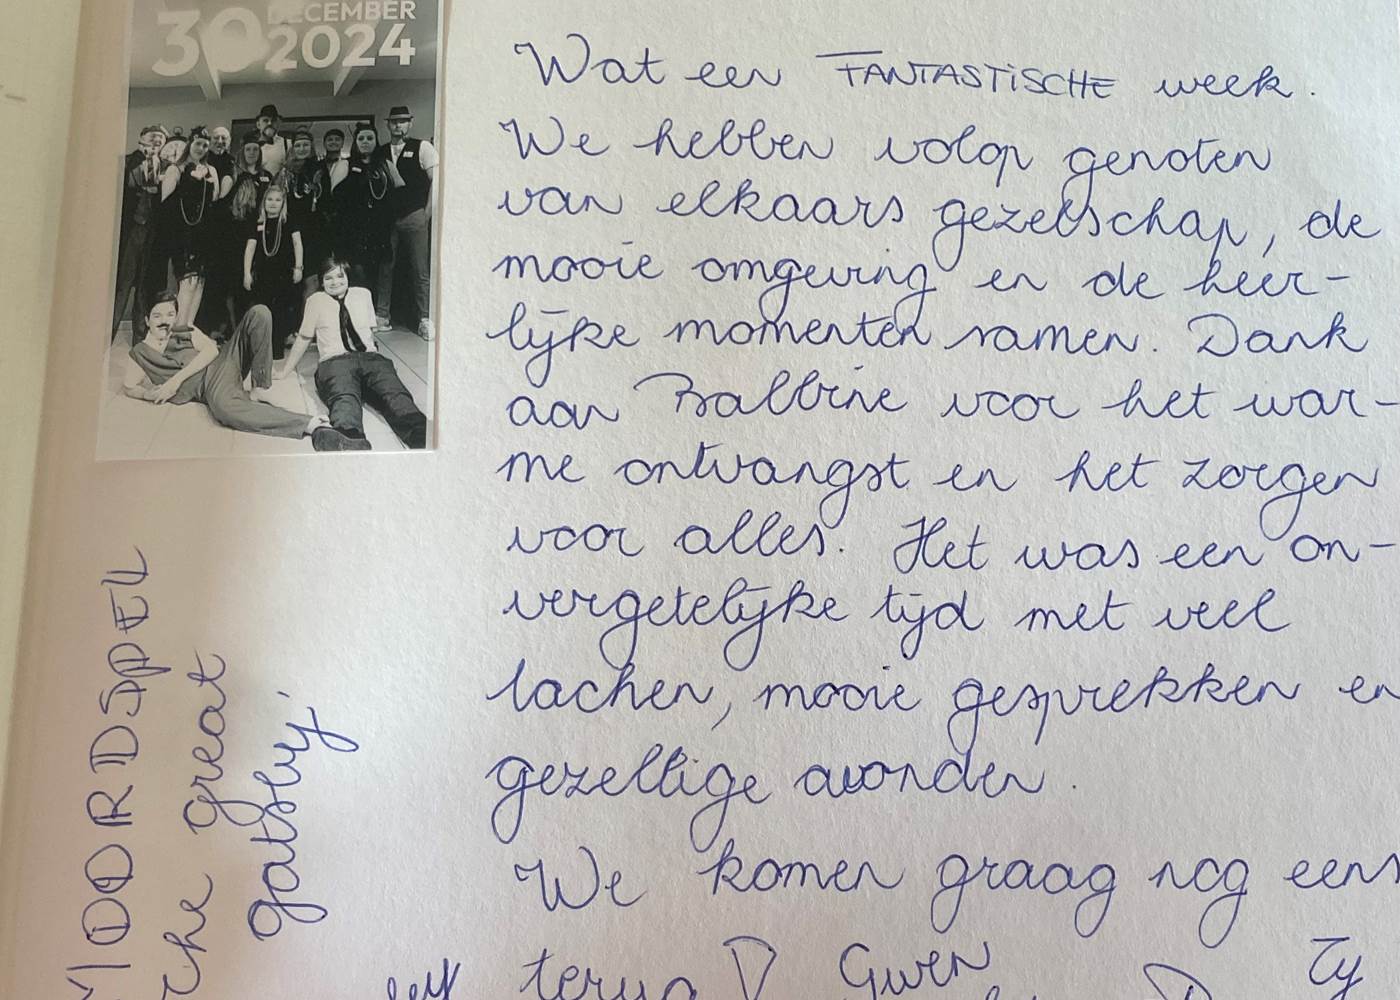 30 DECEMBER
2024
Wat een FANTASTISCHE week.
We hebben volop genoten
van elkaars gezelschap, de
mooie omgeving en de heer-
lijke momenten samen. Dank
aan Balbine voor het war-
me ontvangst en het zorgen
voor alles. Het was een on-
vergetelijke tijd met veel
lachen, mooie gesprekken en
gezellige avonden.
We komen graag nog eens
terug Gwen
MOORDSPEL
the great
gatsby.